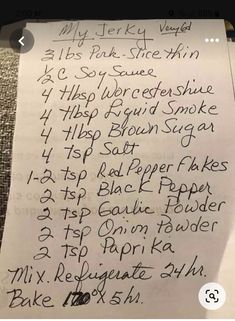 My Jerky Very Good
3 lbs Pork-Slice thin
½ C Soy Sauce
4 tbsp Worcestershire
4 tbsp Liquid Smoke
4 tbsp Brown Sugar
4 tsp Salt
1-2 tsp Red Pepper Flakes
2 tsp Black Pepper
2 tsp Garlic Powder
2 tsp Onion Powder
2 tsp Paprika
Mix. Refrigerate 24 hr.
Bake 170° x 5 hr.